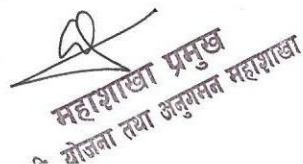 महाशाखा प्रमुख
योजना तथा अनुगमन महाशाखा